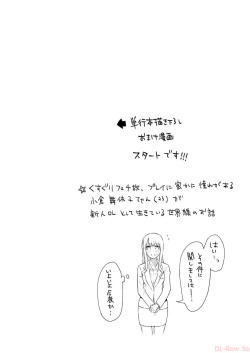 ← 単行本描き下ろし
おまけ漫画
スタートです!!!
☆くすぐりフェチ故、プレイに密かに憧れがある
小倉舞依子ちゃん(23)が
新人OLとして生きている世界線のお話
はい…
その件に
関しましては…
いよいよ今夜か…
DL-Raw.Se